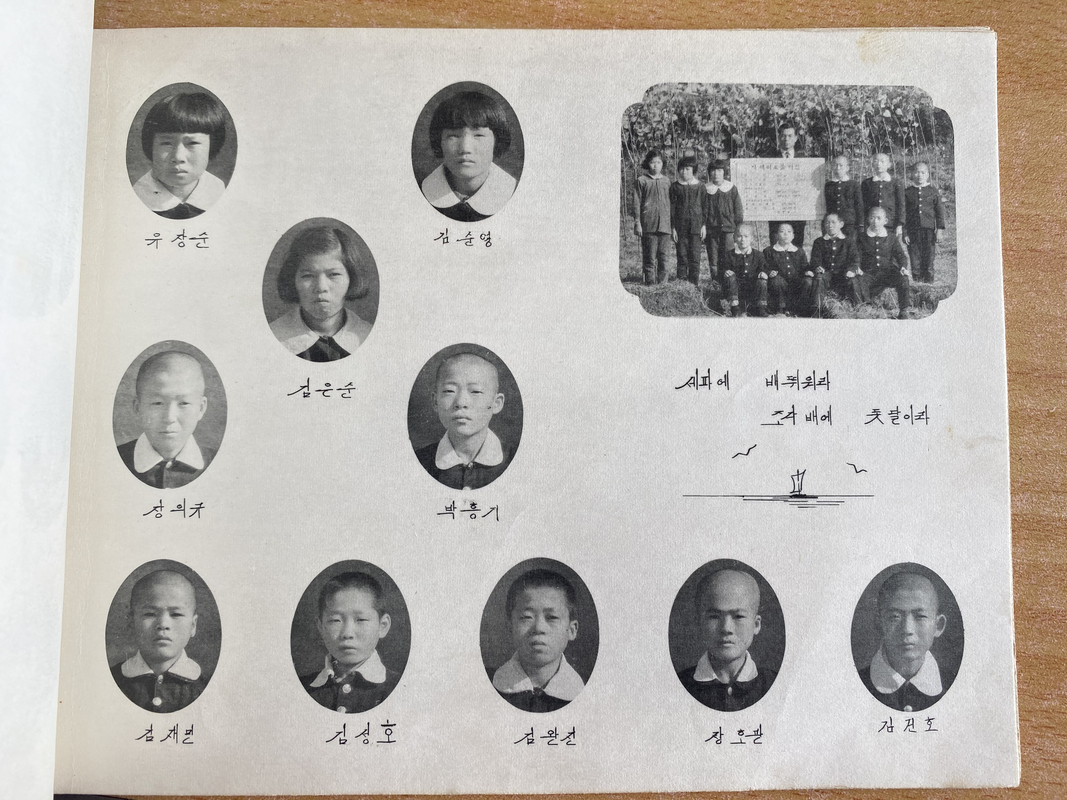 유장순
김순영
김은순
세파에 배띄워라
조각배에 돛달이라
장의규
박흥기
김재면
김성호
김완선
장호팔
김건호